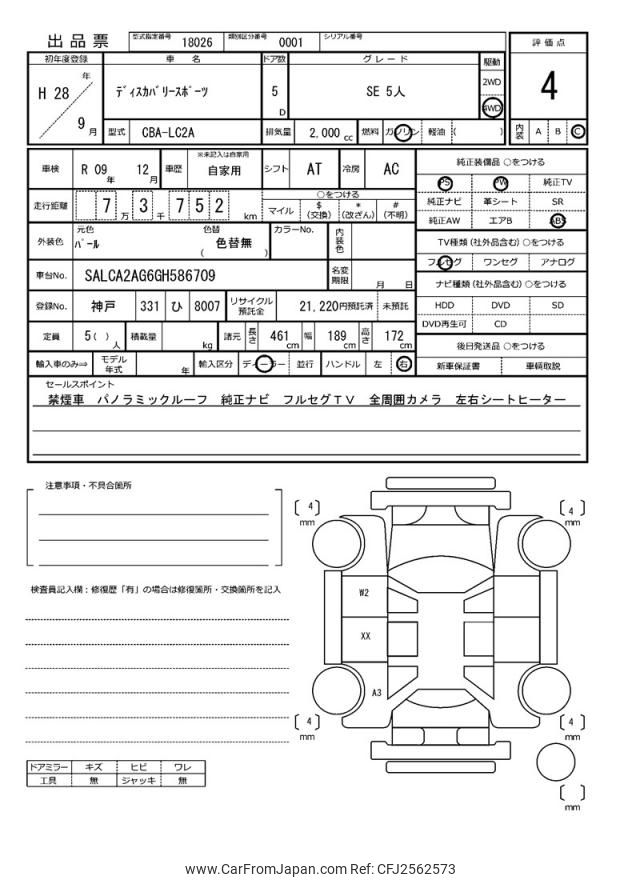 出品票 型式指定番号 18026 類別区分番号 0001 シリアル番号
評価点
初年度登録 車名 ドア数 グレード 駆動
H 28 年 9 月 ディスカバリースポーツ 5 D SE 5人 2WD 4WD
4
型式 CBA-LC2A 排気量 2,000 cc 燃料 ガソリン 軽油 ( )
内装 A B C
車検 R 09 年 12 月 車歴 ※未記入は自家用 自家用 シフト AT 冷房 AC
純正装備品 ○をつける
PS PW 純正TV
純正ナビ 革シート SR
純正AW エアB ABS
走行距離 7 万 3 千 7 5 2 km
○をつける
マイル $ (交換) * (改ざん) # (不明)
外装色 元色 パール 色替 色替無 ( ) カラーNo. 内装色
TV種類 (社外品含む) ○をつける
フルセグ ワンセグ アナログ
車台No. SALCA2AG6GH586709 名変期限 月 日
ナビ種類 (社外品含む) ○をつける
HDD DVD SD
DVD再生可 CD
登録No. 神戸 331 ひ 8007 リサイクル預託金 21,220円預託済 未預託
定員 5( ) 人 積載量 kg 諸元 長さ 461 cm 幅 189 cm 高さ 172 cm
後日発送品 ○をつける
新車保証書 車輌取説
輸入車のみ⇒ モデル年式 年 輸入区分 ディーラー 並行 ハンドル 左 右
セールスポイント
禁煙車 パノラミックルーフ 純正ナビ フルセグTV 全周囲カメラ 左右シートヒーター
注意事項・不具合箇所
検査員記入欄：修復歴「有」の場合は修復箇所・交換箇所を記入
[ 4 ] mm
[ 4 ] mm
W2
XX
A3
[ 4 ] mm
[ 4 ] mm
[ ] mm
ドアミラー キズ ヒビ ワレ
工具 無 ジャッキ 無
www.CarFromJapan.com Ref: CFJ2562573